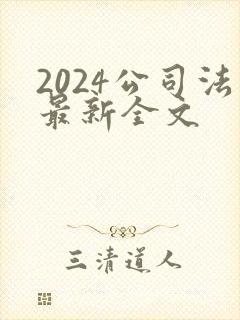 2024公司法
最新全文
三清道人